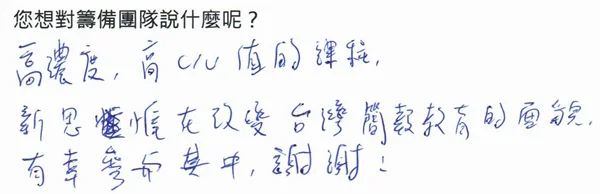 您想對籌備團隊說什麼呢？
高濃度，高C/U值的課程，
新思惟在改變台灣簡報教育的面貌，
有幸參與其中，謝謝！